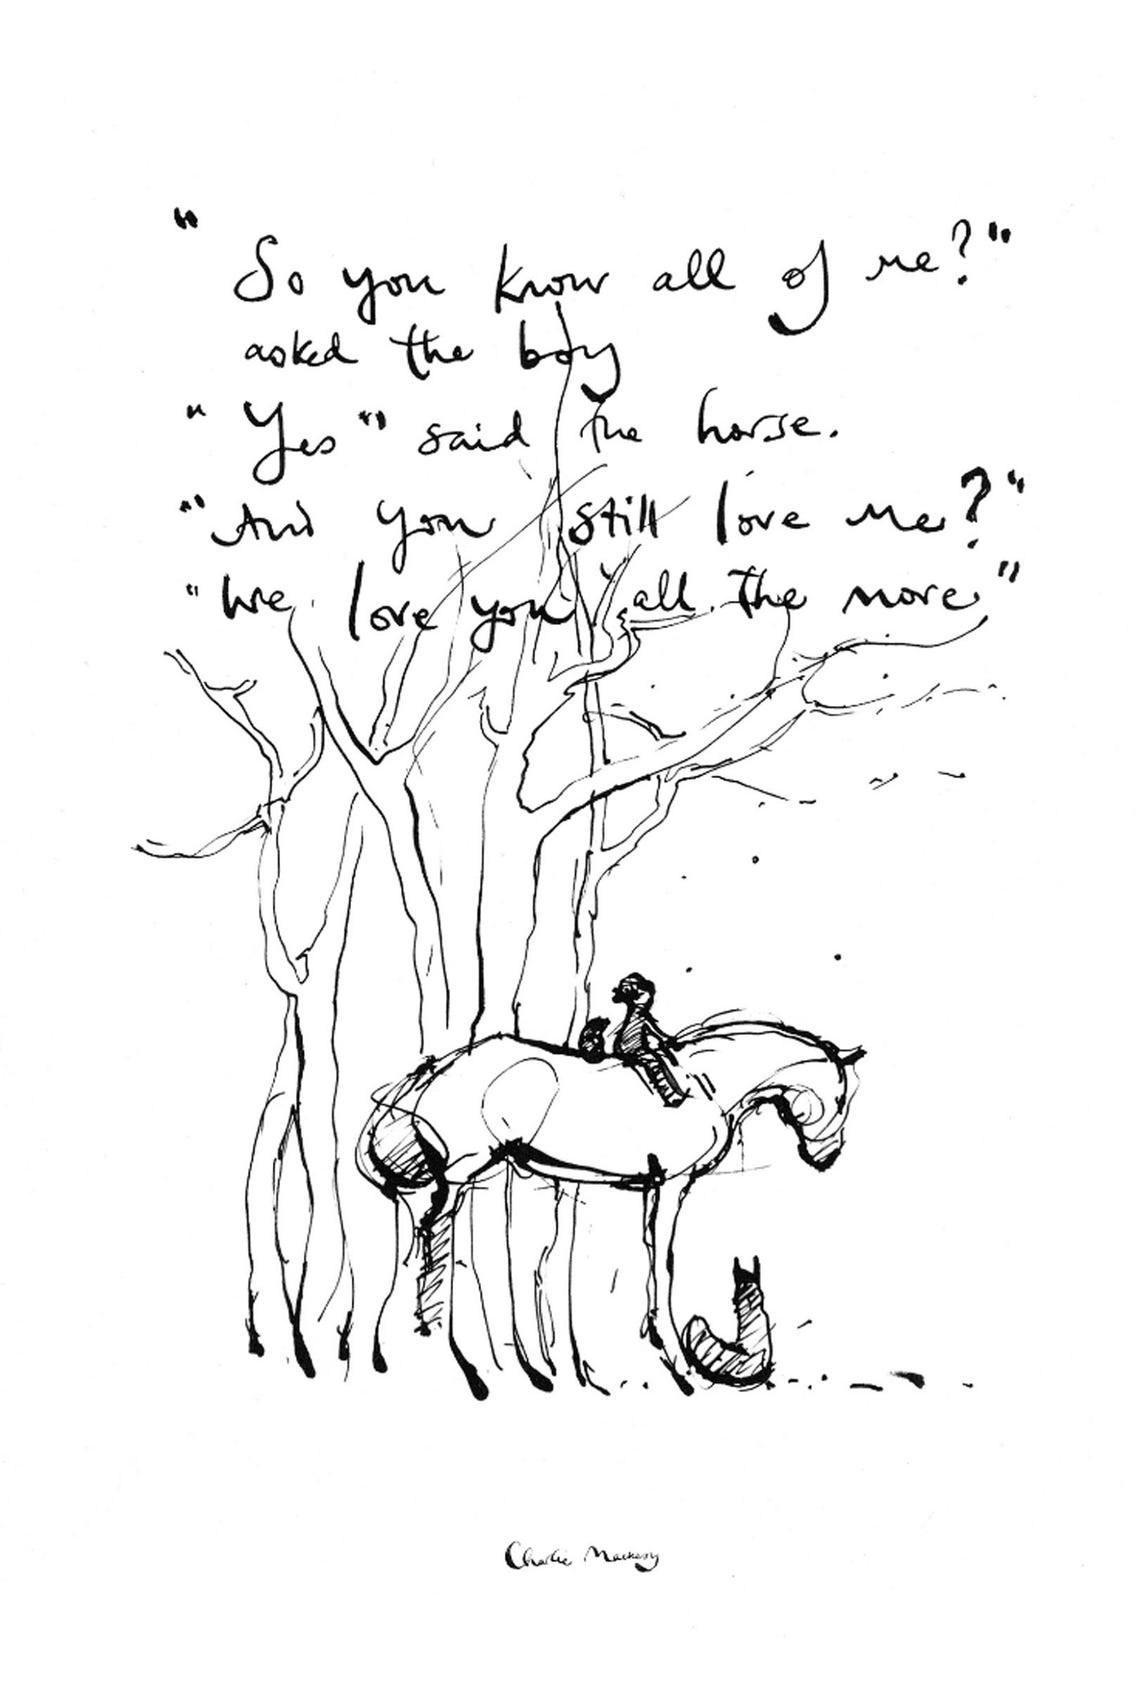 "So you know all of me?"
asked the boy
"Yes" said the horse.
"And you still love me?"
"We love you all the more"
Charlie Mackesy